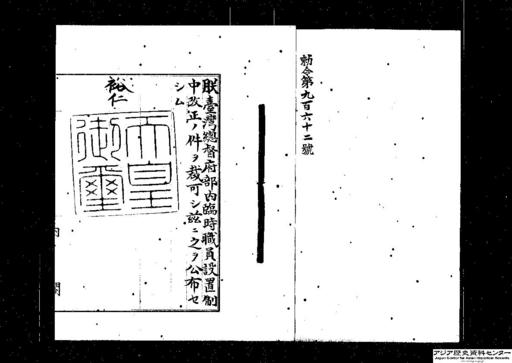 勅令第九百六十二號
朕臺灣總督府部內臨時職員設置制
中改正ノ件ヲ裁可シ茲ニ之ヲ公布セ
シム
裕仁
天皇
御璽
內閣
アジア歴史資料センター
Japan Center for Asian Historical Records